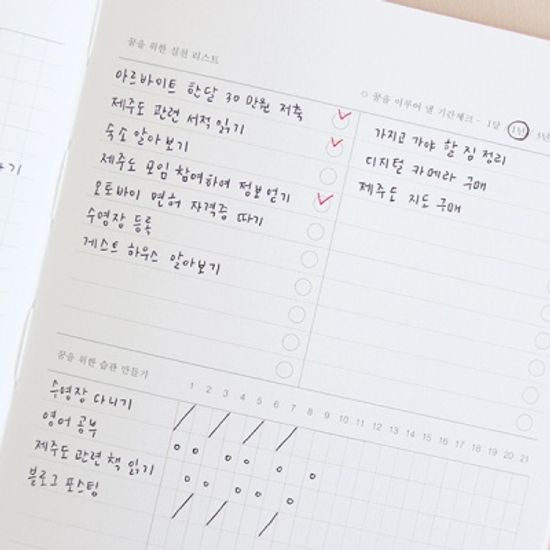 꿈을 위한 실천 리스트
아르바이트 한달 30 만원 저축
제주도 관련 서적 읽기
숙소 알아보기
제주도 모임 참여하여 정보 얻기
오토바이 면허 자격증 따기
수영장 등록
게스트 하우스 알아보기
꿈을 이루어 낼 기간체크 - 1달 1년 5년
가지고 가야 할 짐 정리
디지털 카메라 구매
제주도 지도 구매
꿈을 위한 습관 만들기
1 2 3 4 5 6 7 8 9 10 11 12 13 14 15 16 17 18 19 20 21
수영장 다니기
영어 공부
제주도 관련 책 읽기
블로그 포스팅